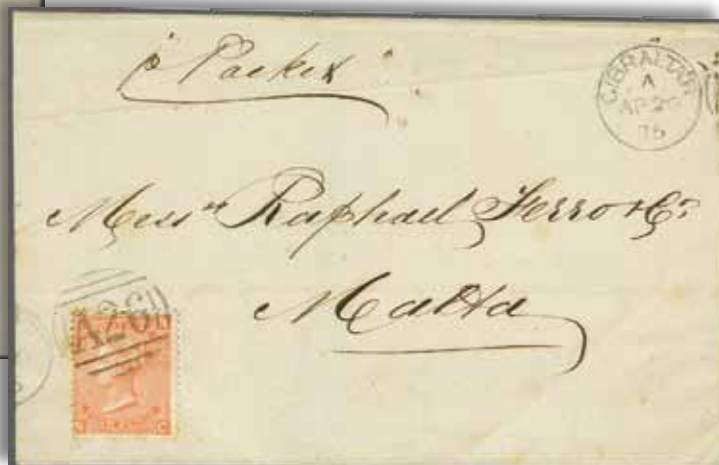 "p Packet"
GIBRALTAR
A
AP 29
75
Messrs Raphael Ferro & Co
Malta
A26